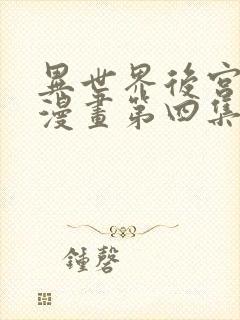 異世界後宮
漫畫第四集
鍾磬